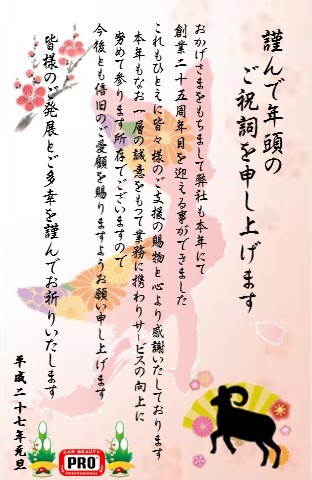 謹んで年頭の
ご祝詞を申し上げます
おかげさまをもちまして弊社も本年にて
創業二十五周年目を迎える事ができました
これもひとえに皆々様のご支援の賜物と心より感謝いたしております
本年もなお一層の誠意をもって業務に携わりサービスの向上に
努めて参ります所存でございますので
今後とも倍旧のご愛顧を賜りますようお願い申し上げます
皆様のご発展とご多幸を謹んでお祈りいたします
平成二十七年元旦
CAR BEAUTY
PRO
PROFESSIONAL